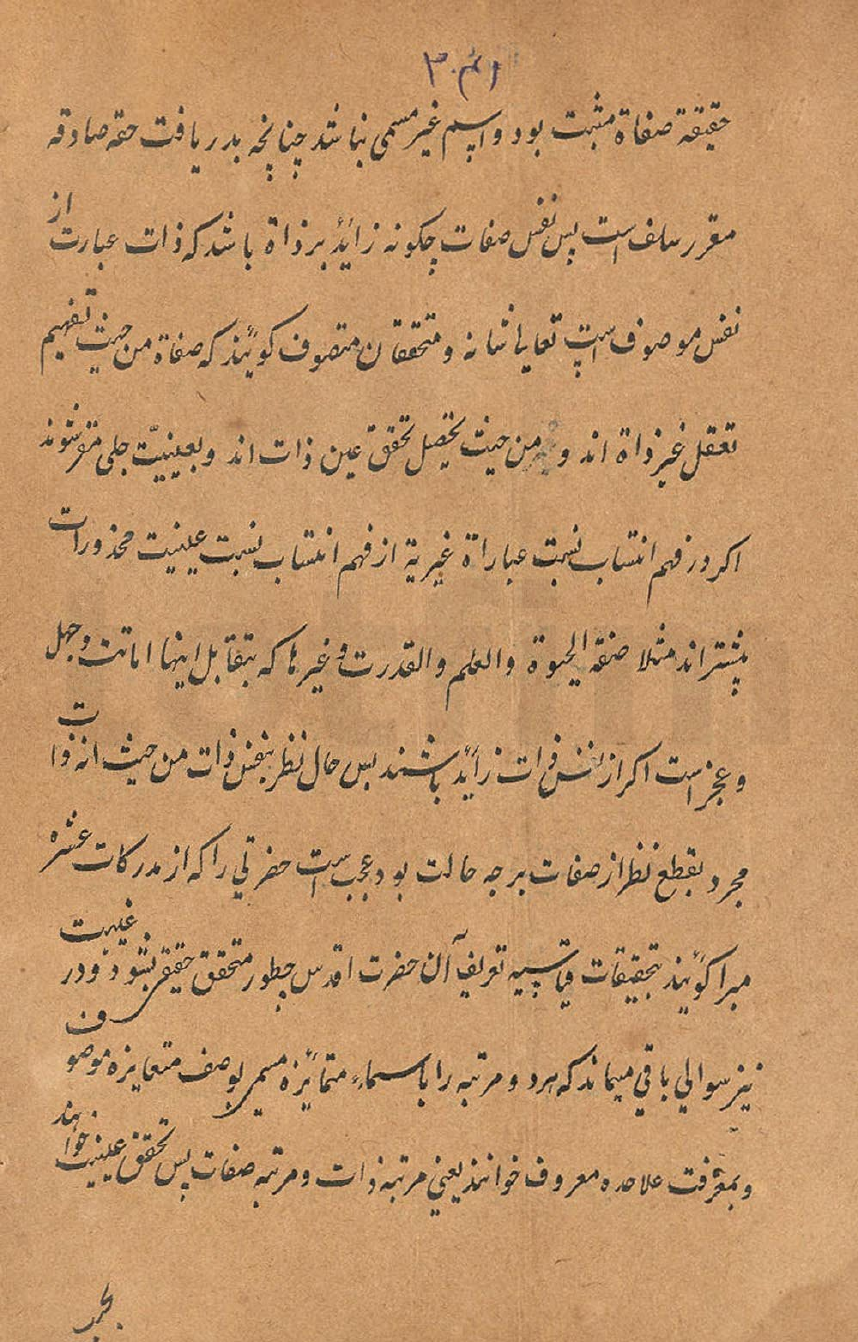 حقیقة صفاة مثبت بود و اسم غیر مسمی نباشد چنانچه بدریافت حقه صادقه
مقرر سلف است پس نفس صفات چکونه زائد بر ذاة باشد که ذات عبارت از
نفس موصوف است تعالی شانه و متحققان متصوف کویند که صفاة من حیث تفهیم
تعقل غیر ذاة اند و من حیث تحصل تحقق عین ذات اند و بعینیت جلی مقر شوند
اکر در فهم انتساب نسبت عباراة غیریة از فهم انتساب نسبت عینیت محذورات
بیشتر اند مثلا صفة الحیوة والعلم والقدرت وغیرها که بتقابل اینها اماتت و جهل
و عجز است اکر از نفس ذات زائد باشند پس حال نظر بنفس ذات من حیث انه ذات
مجرد بقطع نظر از صفات برچه حالت بود عجب است حضرتی را که از مدرکات عشره
مبرا کویند بتحقیقات قیاسیه تعریف آن حضرت اقدس چطور متحقق حقیقی بشود و در غیبت
نیز سوالی باقی میماند که هرد و مرتبه را باسماء متمائزه مسمی بوصف متمایزه موصوف
و بمعرفت علاحده معروف خوانند یعنی مرتبه ذات و مرتبه صفات پس تحقق عینیت خواهند